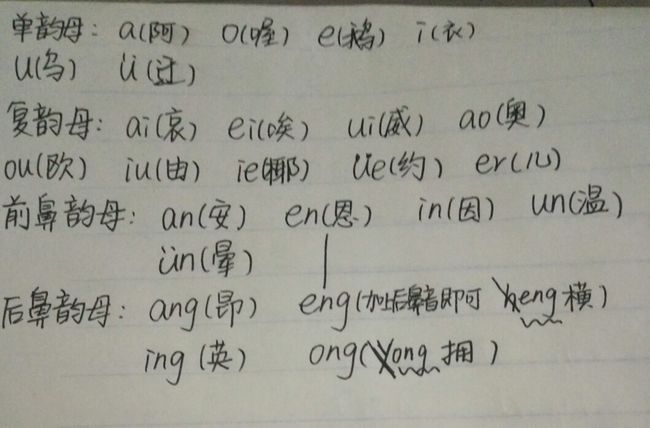 单韵母: a(阿) o(喔) e(鹅) i(衣)
u(乌) ü(迂)
复韵母: ai(哀) ei(唉) ui(威) ao(奥)
ou(欧) iu(由) ie(椰) üe(约) er(儿)
前鼻韵母: an(安) en(恩) in(因) un(温)
ün(晕)
后鼻韵母: ang(昂) eng(加上后鼻音即可 heng横)
ing(英) ong(Yong拥)